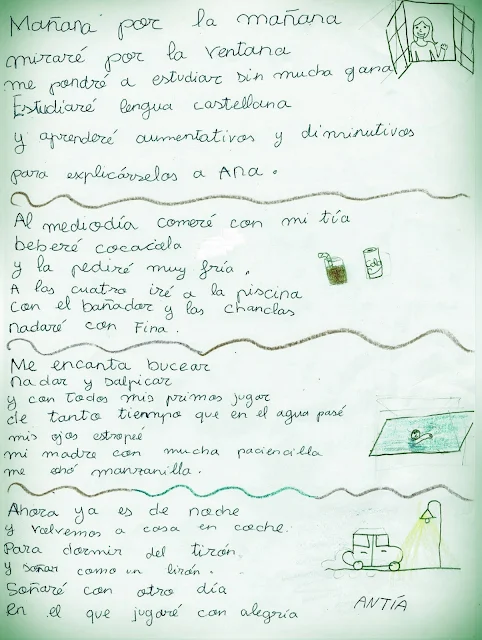 Mañana por la mañana
miraré por la ventana
me pondré a estudiar sin mucha gana
Estudiaré lengua castellana
y aprenderé aumentativos y diminutivos
para explicárselos a Ana.
Al mediodía comeré con mi tía
beberé cocacola
y la pediré muy fría.
A las cuatro iré a la piscina
Con el bañador y las chanclas
nadaré con Fina.
Cola
Me encanta bucear
nadar y salpicar
y con todos mis primos jugar
de tanto tiempo que en el agua pasé
mis ojos estropeé
mi madre con mucha paciencilla
me echó manzanilla.
Ahora ya es de noche
y volvemos a casa en coche.
Para dormir del tirón
y soñar como un lirón.
Soñaré con otro día
En el que jugaré con alegría
ANTÍA